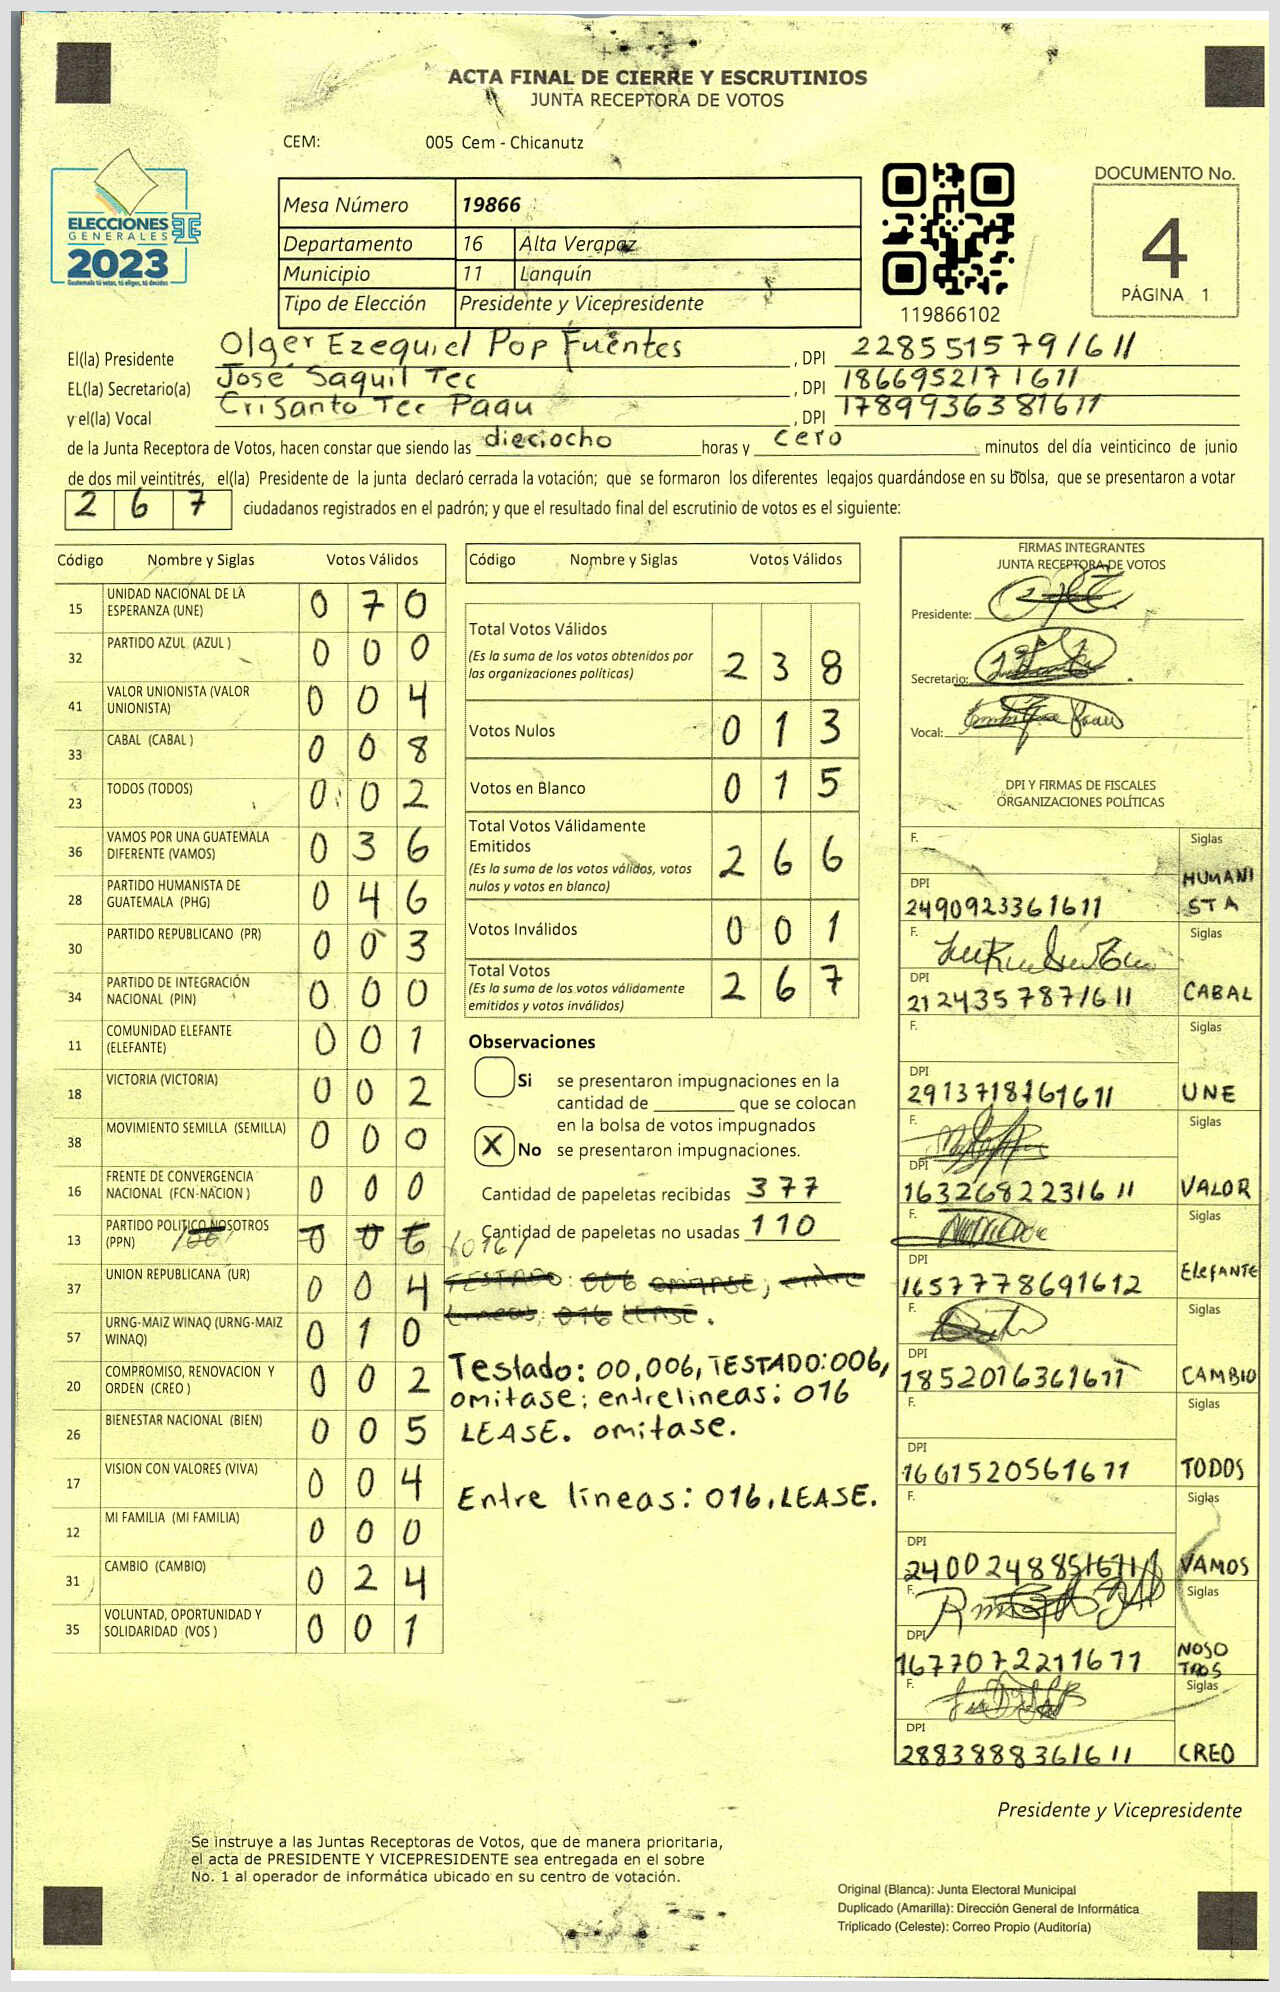 ACTA FINAL DE CIERRE Y ESCRUTINIOS
JUNTA RECEPTORA DE VOTOS
CEM: 005 Cem - Chicanutz
ELECCIONES
GENERALES
2023
Guatemala tú votas, tú eliges, tú decides
Mesa Número 19866
Departamento 16 Alta Verapaz
Municipio 11 Lanquín
Tipo de Elección Presidente y Vicepresidente
119866102
DOCUMENTO No.
4
PÁGINA 1
El(la) Presidente Olger Ezequiel Pop Fuentes , DPI 2285515791611
EL(la) Secretario(a) José Saquil Tec , DPI 1866952171611
y el(la) Vocal Crisanto Tec Paau , DPI 1789936381611
de la Junta Receptora de Votos, hacen constar que siendo las dieciocho horas y cero minutos del día veinticinco de junio
de dos mil veintitrés, el(la) Presidente de la junta declaró cerrada la votación; que se formaron los diferentes legajos guardándose en su bolsa, que se presentaron a votar
2 6 7 ciudadanos registrados en el padrón; y que el resultado final del escrutinio de votos es el siguiente:
Código Nombre y Siglas Votos Válidos
15 UNIDAD NACIONAL DE LA ESPERANZA (UNE) 0 7 0
32 PARTIDO AZUL (AZUL ) 0 0 0
41 VALOR UNIONISTA (VALOR UNIONISTA) 0 0 4
33 CABAL (CABAL ) 0 0 8
23 TODOS (TODOS) 0 0 2
36 VAMOS POR UNA GUATEMALA DIFERENTE (VAMOS) 0 3 6
28 PARTIDO HUMANISTA DE GUATEMALA (PHG) 0 4 6
30 PARTIDO REPUBLICANO (PR) 0 0 3
34 PARTIDO DE INTEGRACIÓN NACIONAL (PIN) 0 0 0
11 COMUNIDAD ELEFANTE (ELEFANTE) 0 0 1
18 VICTORIA (VICTORIA) 0 0 2
38 MOVIMIENTO SEMILLA (SEMILLA) 0 0 0
16 FRENTE DE CONVERGENCIA NACIONAL (FCN-NACION ) 0 0 0
13 PARTIDO POLITICO NOSOTROS (PPN) 0 0 6 /016/
37 UNION REPUBLICANA (UR) 0 0 4
57 URNG-MAIZ WINAQ (URNG-MAIZ WINAQ) 0 1 0
20 COMPROMISO, RENOVACION Y ORDEN (CREO ) 0 0 2
26 BIENESTAR NACIONAL (BIEN) 0 0 5
17 VISION CON VALORES (VIVA) 0 0 4
12 MI FAMILIA (MI FAMILIA) 0 0 0
31 CAMBIO (CAMBIO) 0 2 4
35 VOLUNTAD, OPORTUNIDAD Y SOLIDARIDAD (VOS ) 0 0 1
Código Nombre y Siglas Votos Válidos
Total Votos Válidos
(Es la suma de los votos obtenidos por
las organizaciones políticas) 2 3 8
Votos Nulos 0 1 3
Votos en Blanco 0 1 5
Total Votos Válidamente
Emitidos
(Es la suma de los votos válidos, votos
nulos y votos en blanco) 2 6 6
Votos Inválidos 0 0 1
Total Votos
(Es la suma de los votos válidamente
emitidos y votos inválidos) 2 6 7
Observaciones
Si se presentaron impugnaciones en la
cantidad de ________ que se colocan
en la bolsa de votos impugnados
X No se presentaron impugnaciones.
Cantidad de papeletas recibidas 377
Cantidad de papeletas no usadas 110
TESTADO: 006 OMITASE, entre
lineas, 016 LEASE.
Testado: 00,006, TESTADO:006,
omitase; entrelineas: 016
LEASE. omitase.
Entre lineas: 016, LEASE.
FIRMAS INTEGRANTES
JUNTA RECEPTORA DE VOTOS
Presidente:
Secretario:
Vocal:
DPI Y FIRMAS DE FISCALES
ORGANIZACIONES POLÍTICAS
F. Siglas
DPI 2490923361611 HUMANISTA
F. Siglas
DPI 2124357871611 CABAL
F. Siglas
DPI 2913718761611 UNE
F. Siglas
DPI 1632682231611 VALOR
F. Siglas
DPI 1657778691612 ELEFANTE
F. Siglas
DPI 1852016361611 CAMBIO
F. Siglas
DPI 1661520561611 TODOS
F. Siglas
DPI 2400248851611 VAMOS
F. Siglas
DPI 1677072211611 NOSOTROS
F. Siglas
DPI 2883888361611 CREO
Presidente y Vicepresidente
Se instruye a las Juntas Receptoras de Votos, que de manera prioritaria,
el acta de PRESIDENTE Y VICEPRESIDENTE sea entregada en el sobre
No. 1 al operador de informática ubicado en su centro de votación.
Original (Blanca): Junta Electoral Municipal
Duplicado (Amarilla): Dirección General de Informática
Triplicado (Celeste): Correo Propio (Auditoría)